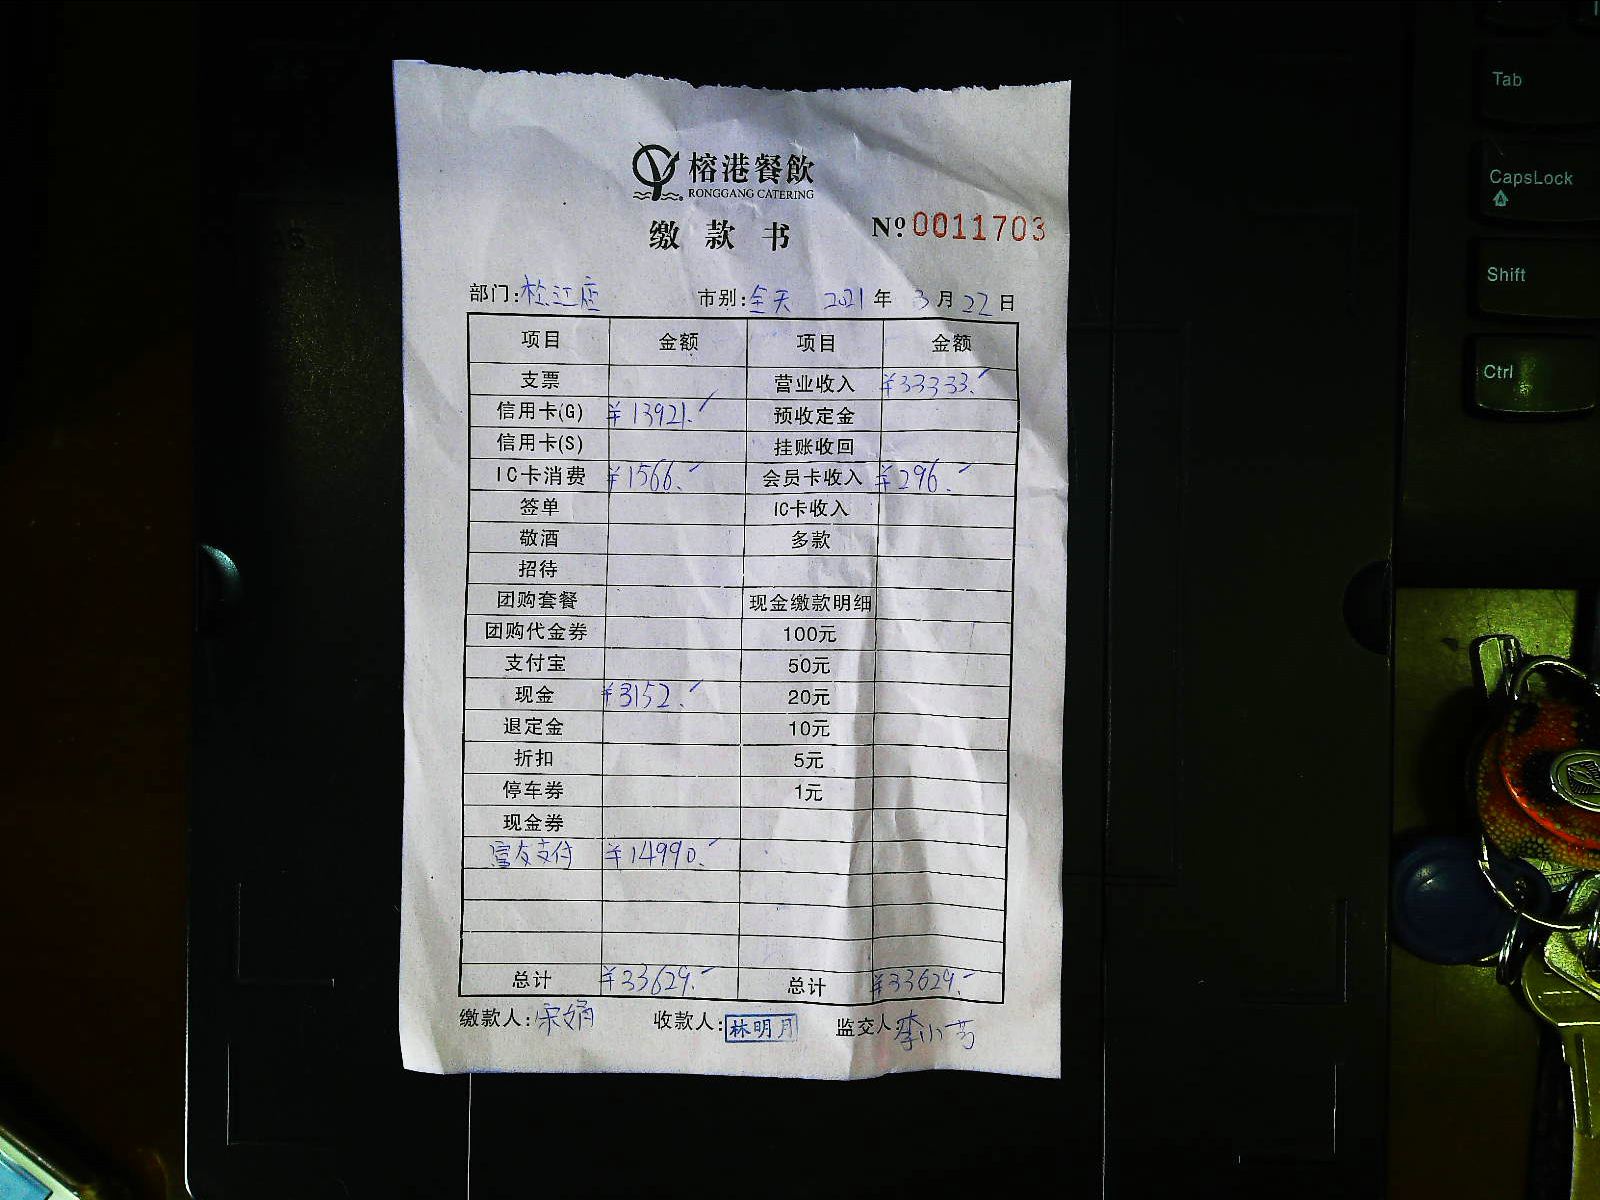 榕港餐飲
RONGGANG CATERING
缴款书 Nº 0011703
部门:松江店 市别:全天 2021年 3月22日
项目 金额 项目 金额
支票 营业收入 ¥33333.
信用卡(G) ¥13921. 预收定金
信用卡(S) 挂账收回
IC卡消费 ¥1566. 会员卡收入 ¥296.
签单 IC卡收入
敬酒 多款
招待
团购套餐 现金缴款明细
团购代金券 100元
支付宝 50元
现金 ¥3152. 20元
退定金 10元
折扣 5元
停车券 1元
现金券
富友支付 ¥14990.
总计 ¥33629. 总计 ¥33629.
缴款人:宋娟 收款人:林明月 监交人:李小芳
Tab
CapsLock
Shift
Ctrl